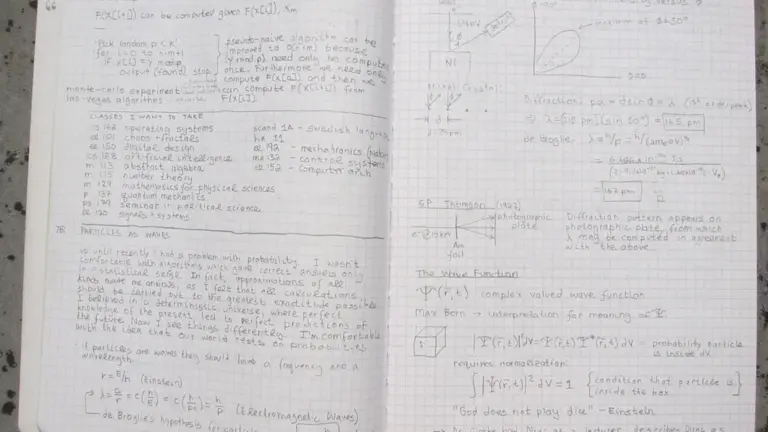 66
F(X[i+1]) can be computed given F(X[i]),
Pick random p < x
for i = 0 to n-m+1
if X[i] = Y mod p
output (found) stop
pseudo-naive algorithm can be
improved to O(n+m) because
Y mod p need only be computed
once. Furthermore we need only
compute F(X[0]) and then we
can compute F(X[i+1]) from
F(X[i])
monte-carlo experiment
las-vegas algorithms
CLASSES I WANT TO TAKE
cs 142 operating systems
101 chaos + fractals
ee 150 digital design
cs 188 artificial intelligence
m 113 abstract algebra
m 115 number theory
m 129 mathematics for physical sciences
p 137 quantum mechanics
ps 179 seminar in political science
ee 120 signals + systems
scand 1A - Swedish language
hx 11
ee 192 - mechatronics
me 132 - control systems
cs 152 - computer arch
7B PARTICLES AS WAVES
up until recently I had a problem with probability. I wasn't
comfortable with algorithms which gave correct answers only
in a statistical sense. In fact, approximations of all
kinds made me anxious, as I felt that all calculations
should be carried out to the greatest exactitude possible
I believed in a deterministic universe, where perfect
knowledge of the present led to perfect predictions of
the future. Now I see things differently. I'm comfortable
with the idea that our world rests on probabilities
if particles are waves they should have a frequency and a
wavelength.
r = E/h (Einstein)
λ = c/r = c(h/E) = c(h/pc) = h/p (Electromagnetic Waves)
de Broglie's hypothesis for particles
Ni
Nickel Crystal
maximum at φ=50°
φ=90
Diffraction: pλ = d sin φ = λ (1st order peak)
⇒ λ = (215 pm) sin 50° = 165 pm
de Broglie: λ = h/p = h/(2me V)½
GP Thomson (1927)
photographic
plate
Au
foil
Diffraction pattern appears on
photographic plate, from which
λ may be computed in agreement
with the above.
The Wave Function
Ψ(r,t) complex valued wave function
Max Born → interpretation for meaning of Ψ
|Ψ(r,t)|² dV = Ψ(r,t) Ψ*(r,t) dV = probability particle
is inside dV
requires normalization:
∫|Ψ(r,t)|² dV = 1 {condition that particle is
inside the box}
"God does not play dice" - Einstein